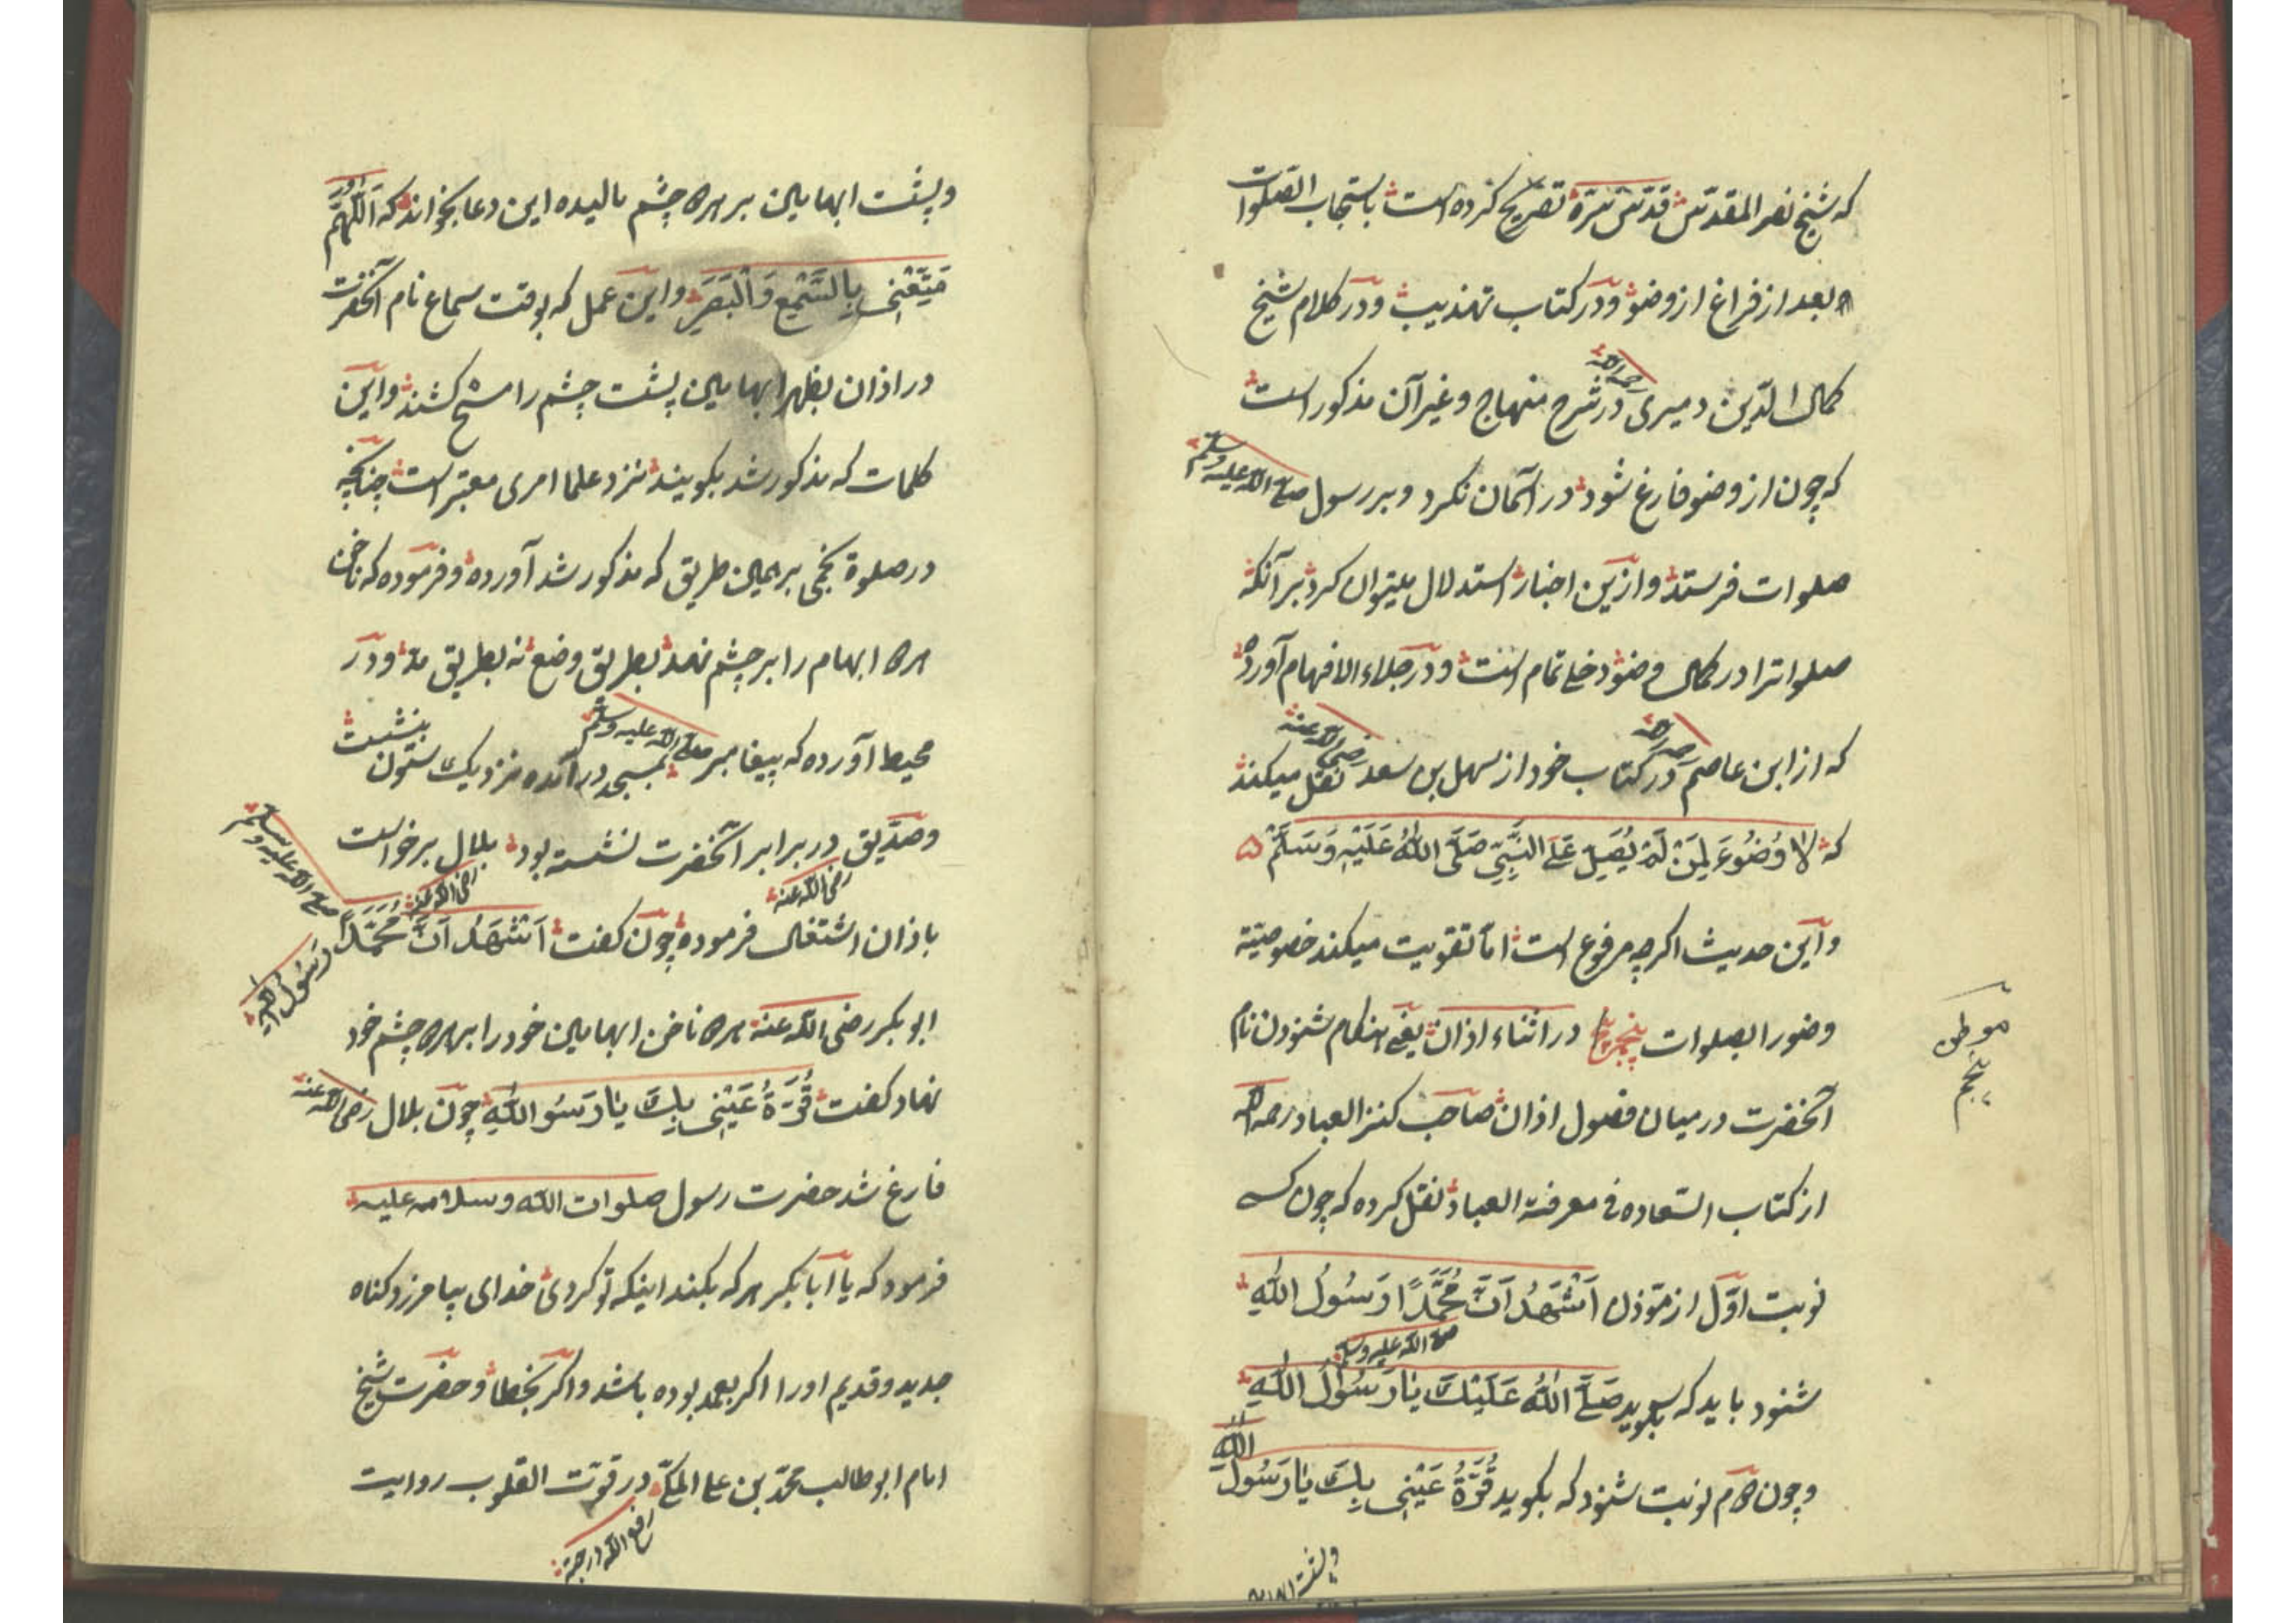 که شیخ نصر المقدسی قدّس سرّه تصریح کرده است باستحباب الصلوات
بعد از فراغ از وضو و در کتاب تهذیب و در کلام شیخ
کمال الدّین دمیری رحمه الله در شرح منهاج و غیر آن مذکور است
که چون از وضو فارغ شود در آسمان نکرد و بر رسول صلی الله علیه وسلم
صلوات فرستد و ازین اخبار استدلال میتوان کرد بر آنکه
صلوات را در کمال وضو دخلی تمام است و در جلاء الافهام آورده
که از ابن عاصم رحمه الله در کتاب خود از سهل بن سعد رضی الله عنه نقل میکند
که لَا وُضُوءَ لِمَنْ لَمْ يُصَلِّ عَلَى النَّبِيِّ صَلَّى اللهُ عَلَيْهِ وَسَلَّمْ
و این حدیث اکرچه مرفوع است اما تقویت میکند خصوصیّة
وضو را بصلوات پنجم در اثناء اذان یعنی هنکام شنودن نام
موطن پنجم
آنحضرت در میان فصول اذان صاحب کنز العباد رحمه الله
از کتاب السّعاده فی معرفة العباد نقل کرده که چون کسی
نوبت اوّل از مؤذن اَشْهَدُ اَنَّ مُحَمَّدًا رَسُولُ اللهِ
شنود باید که بکوید صَلَّى اللهُ عَلَيْكَ يَا رَسُولَ اللهِ صلی الله علیه وسلم
و چون دوم نوبت شنود که بکوید قُرَّةُ عَيْنِي بِكَ يَا رَسُولَ اللهِ
و پشت ابهامین
و پشت ابهامین بر هر دو چشم مالیده این دعا بخواند که اَللّٰهُمَّ
مَتِّعْنِي بِالسَّمْعِ وَالْبَصَرِ و این عمل که بوقت سماع نام آنحضرت
در اذان بظهر ابهامین پشت چشم را مسح کشند و این
کلمات که مذکور شد بکویند نزد علما امری معتبر است چنانچه
در صلوة نخجی بر همین طریق که مذکور شد آورده و فرموده که ناخن
هر دو ابهام را بر چشم نهد بطریق وضع نه بطریق مدّ و در
محیط آورده که پیغامبر صلی الله علیه وسلم بمسجد در آمده نزدیک ستون بنشست
و صدّیق رضی الله عنه در برابر آنحضرت نشسته بود بلال رضی الله عنه برخواست
باذان اشتغال فرموده چون کفت اَشْهَدُ اَنَّ مُحَمَّدًا رَسُولُ اللهِ صلی الله علیه وسلم
ابو بکر رضی الله عنه هر دو ناخن ابهامین خود را بر هر دو چشم خود
نهاد کفت قُرَّةُ عَيْنِي بِكَ يَا رَسُولَ اللهِ چون بلال رضی الله عنه
فارغ شد حضرت رسول صلوات الله وسلامه علیه
فرمود که یا ابا بکر هر که بکند اینکه تو کردی خدای بیامرزد کناه
جدید و قدیم او را اکر بعمد بوده باشد و اکر بخطا و حضرت شیخ
امام ابو طالب محمّد بن علی المکّی رفع الله درجته در قوّت القلوب روایت